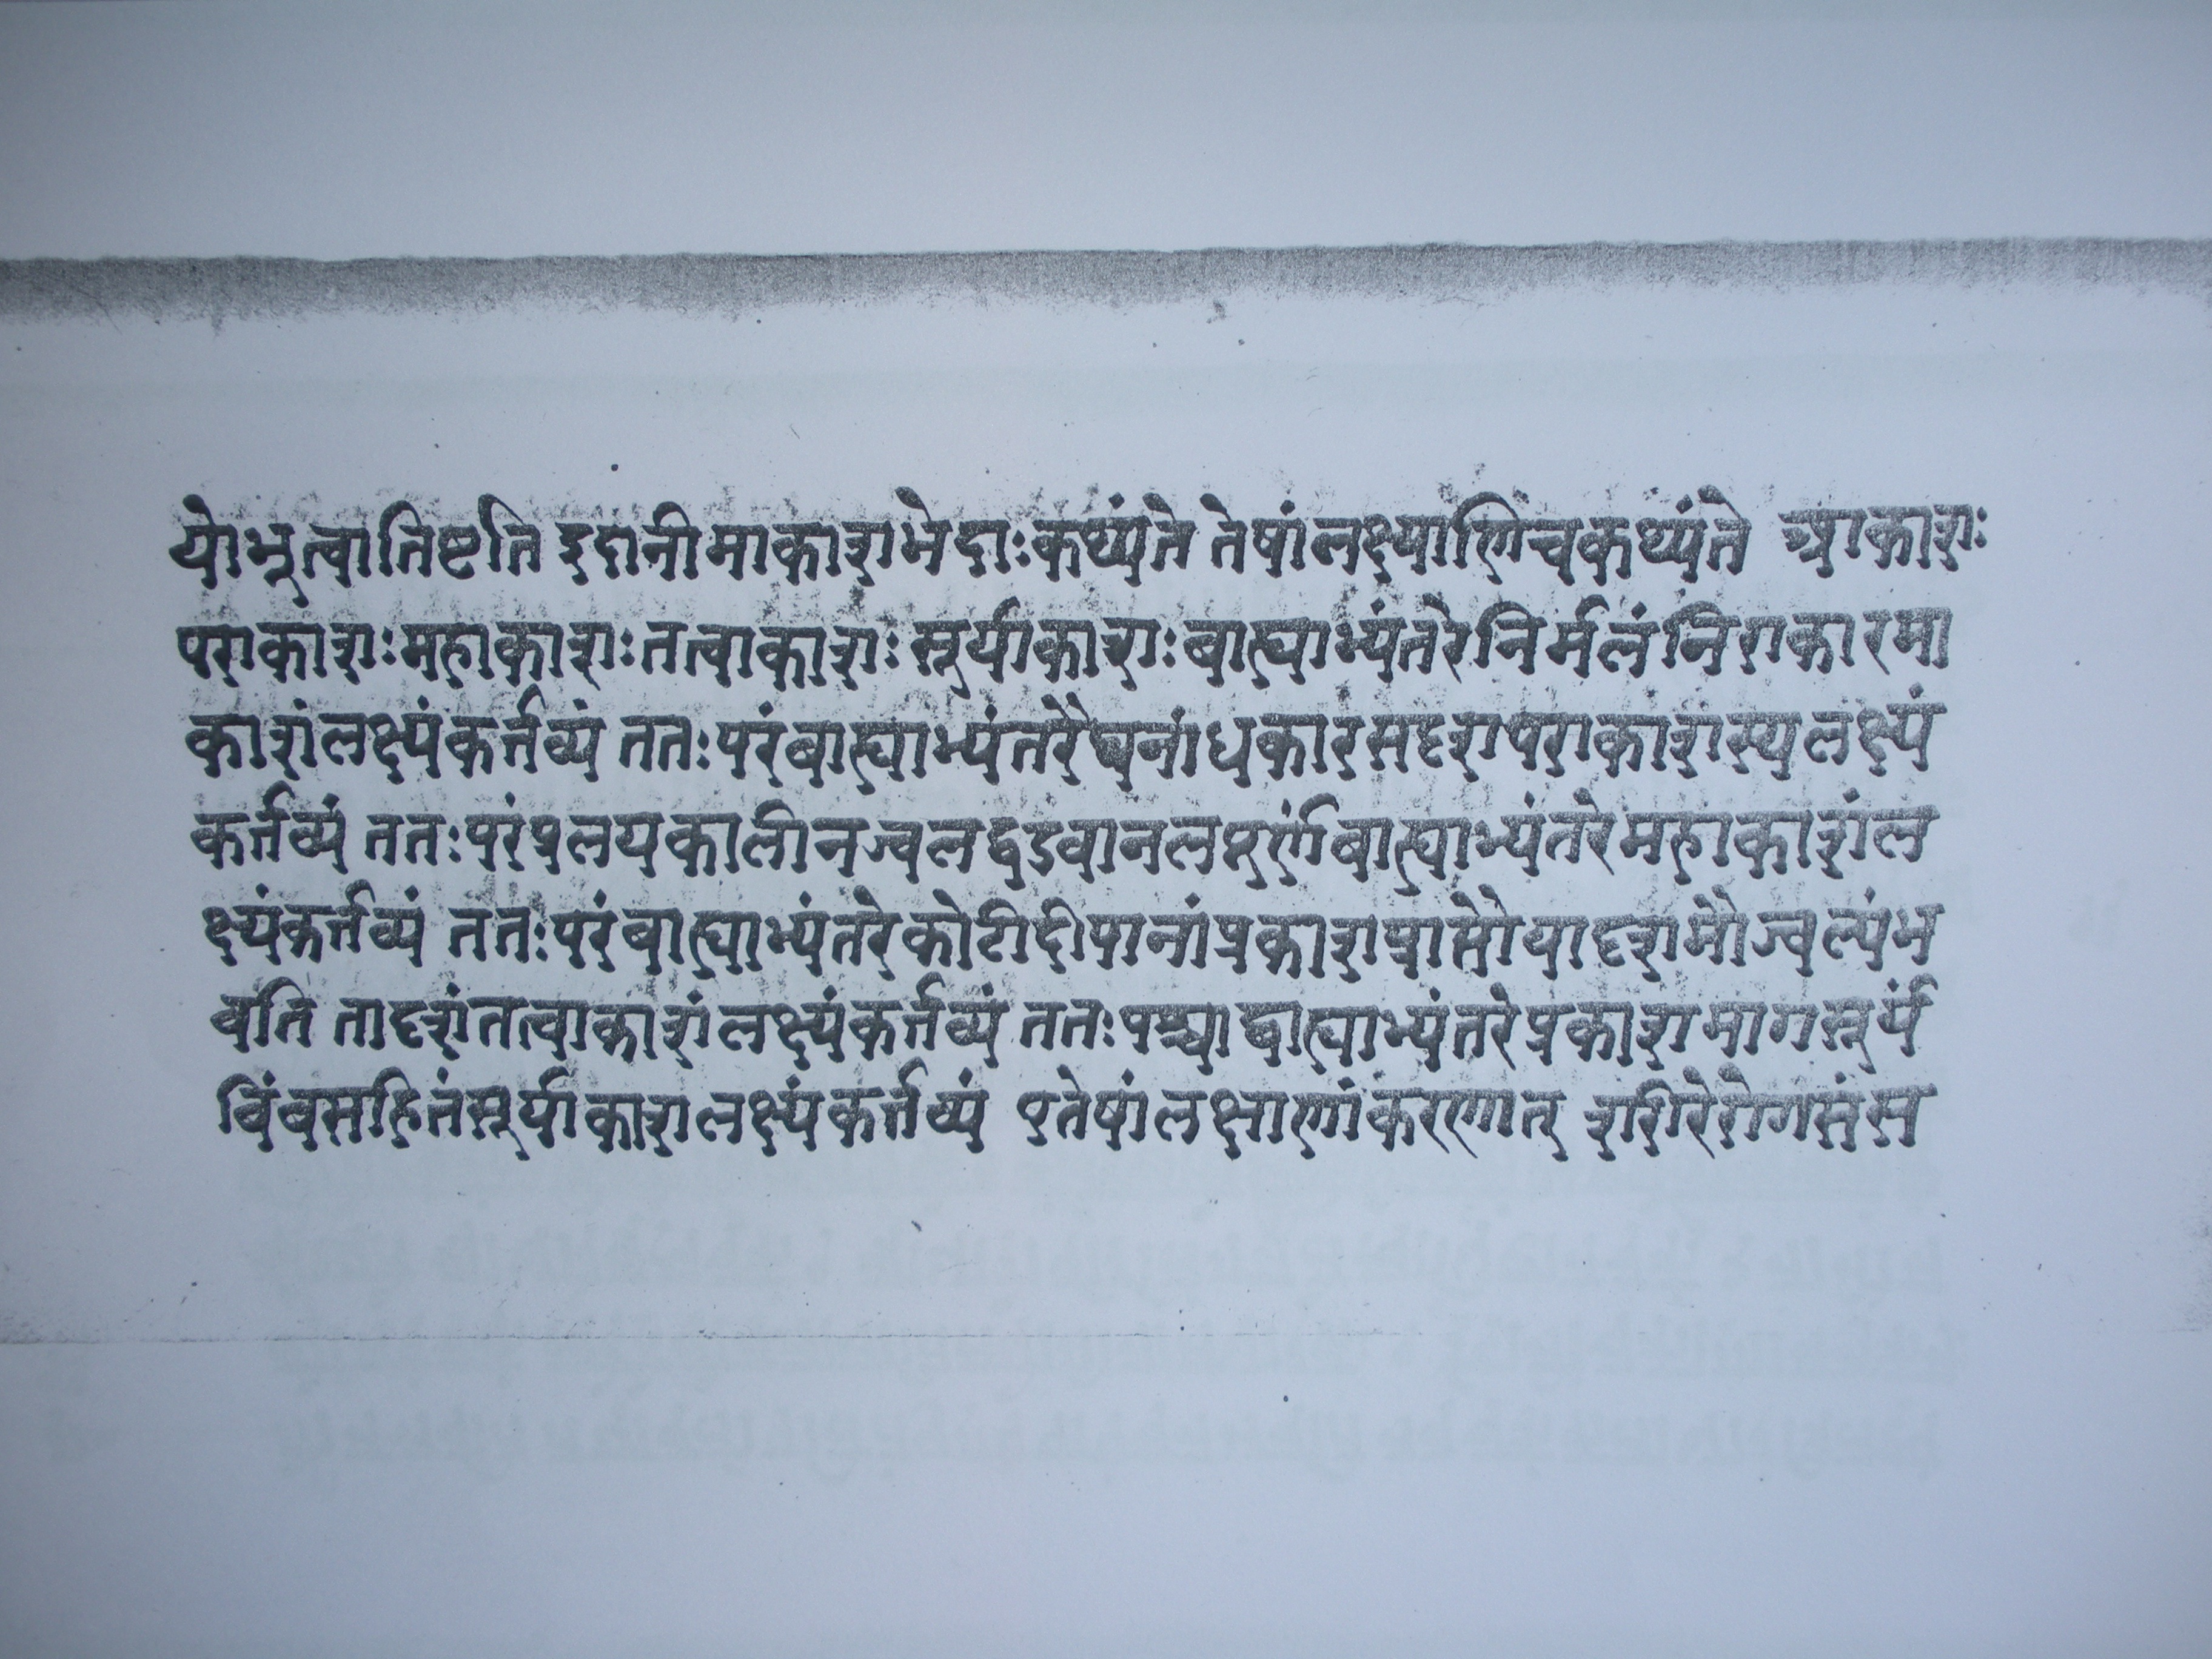 योभूत्वातिष्टति इदानीमाकाशभेदाःकथ्यंते तेषांलक्ष्याणिचकथ्यंते आकाशः
पराकाशः महाकाशः तत्वाकाशः सूर्याकाशः बाह्याभ्यंतरेनिर्मलंनिराकारमा
काशंलक्ष्यंकर्त्तव्यं ततःपरंबाह्याभ्यंतरेघनांधकारसदृशपराकाशस्यलक्ष्यं
कर्त्तव्यं ततःपरंप्रलयकालीनज्वलद्वडवानलपूर्णंबाह्याभ्यंतरेमहाकाशंल
क्ष्यंकर्त्तव्यं ततःपरंबाह्याभ्यंतरेकोटीदीपानांप्रकाशप्राप्तौयादृशमौज्वल्यंभ
वति तादृशंतत्वाकाशंलक्ष्यंकर्त्तव्यं ततःपश्चाद्बाह्याभ्यंतरेप्रकाशमागसूर्य
बिंबसहितंसूर्याकाशलक्ष्यंकर्त्तव्यं एतेषांलक्षाणांकरणात् शरीरेरोगसंस